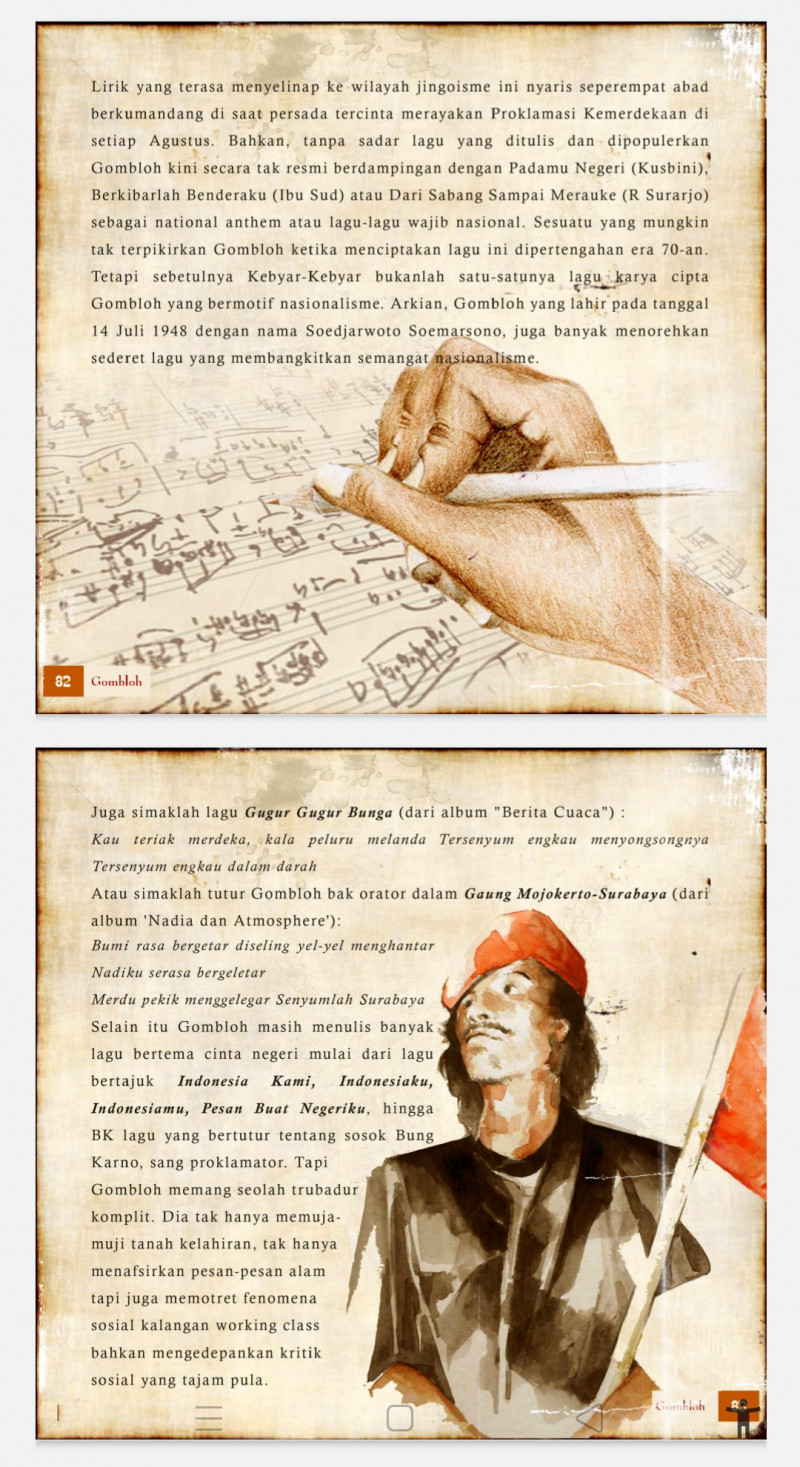 Lirik yang terasa menyelinap ke wilayah jingoisme ini nyaris seperempat abad
berkumandang di saat persada tercinta merayakan Proklamasi Kemerdekaan di
setiap Agustus. Bahkan, tanpa sadar lagu yang ditulis dan dipopulerkan
Gombloh kini secara tak resmi berdampingan dengan Padamu Negeri (Kusbini),
Berkibarlah Benderaku (Ibu Sud) atau Dari Sabang Sampai Merauke (R Surarjo)
sebagai national anthem atau lagu-lagu wajib nasional. Sesuatu yang mungkin
tak terpikirkan Gombloh ketika menciptakan lagu ini dipertengahan era 70-an.
Tetapi sebetulnya Kebyar-Kebyar bukanlah satu-satunya lagu karya cipta
Gombloh yang bermotif nasionalisme. Arkian, Gombloh yang lahir pada tanggal
14 Juli 1948 dengan nama Soedjarwoto Soemarsono, juga banyak menorehkan
sederet lagu yang membangkitkan semangat nasionalisme.
82 Gombloh
Juga simaklah lagu Gugur Gugur Bunga (dari album "Berita Cuaca") :
Kau teriak merdeka, kala peluru melanda Tersenyum engkau menyongsongnya
Tersenyum engkau dalam darah
Atau simaklah tutur Gombloh bak orator dalam Gaung Mojokerto-Surabaya (dari
album 'Nadia dan Atmosphere'):
Bumi rasa bergetar diseling yel-yel menghantar
Nadiku serasa bergeletar
Merdu pekik menggelegar Senyumlah Surabaya
Selain itu Gombloh masih menulis banyak
lagu bertema cinta negeri mulai dari lagu
bertajuk Indonesia Kami, Indonesiaku,
Indonesiamu, Pesan Buat Negeriku, hingga
BK lagu yang bertutur tentang sosok Bung
Karno, sang proklamator. Tapi
Gombloh memang seolah trubadur
komplit. Dia tak hanya memuja-
muji tanah kelahiran, tak hanya
menafsirkan pesan-pesan alam
tapi juga memotret fenomena
sosial kalangan working class
bahkan mengedepankan kritik
sosial yang tajam pula.
Gombloh